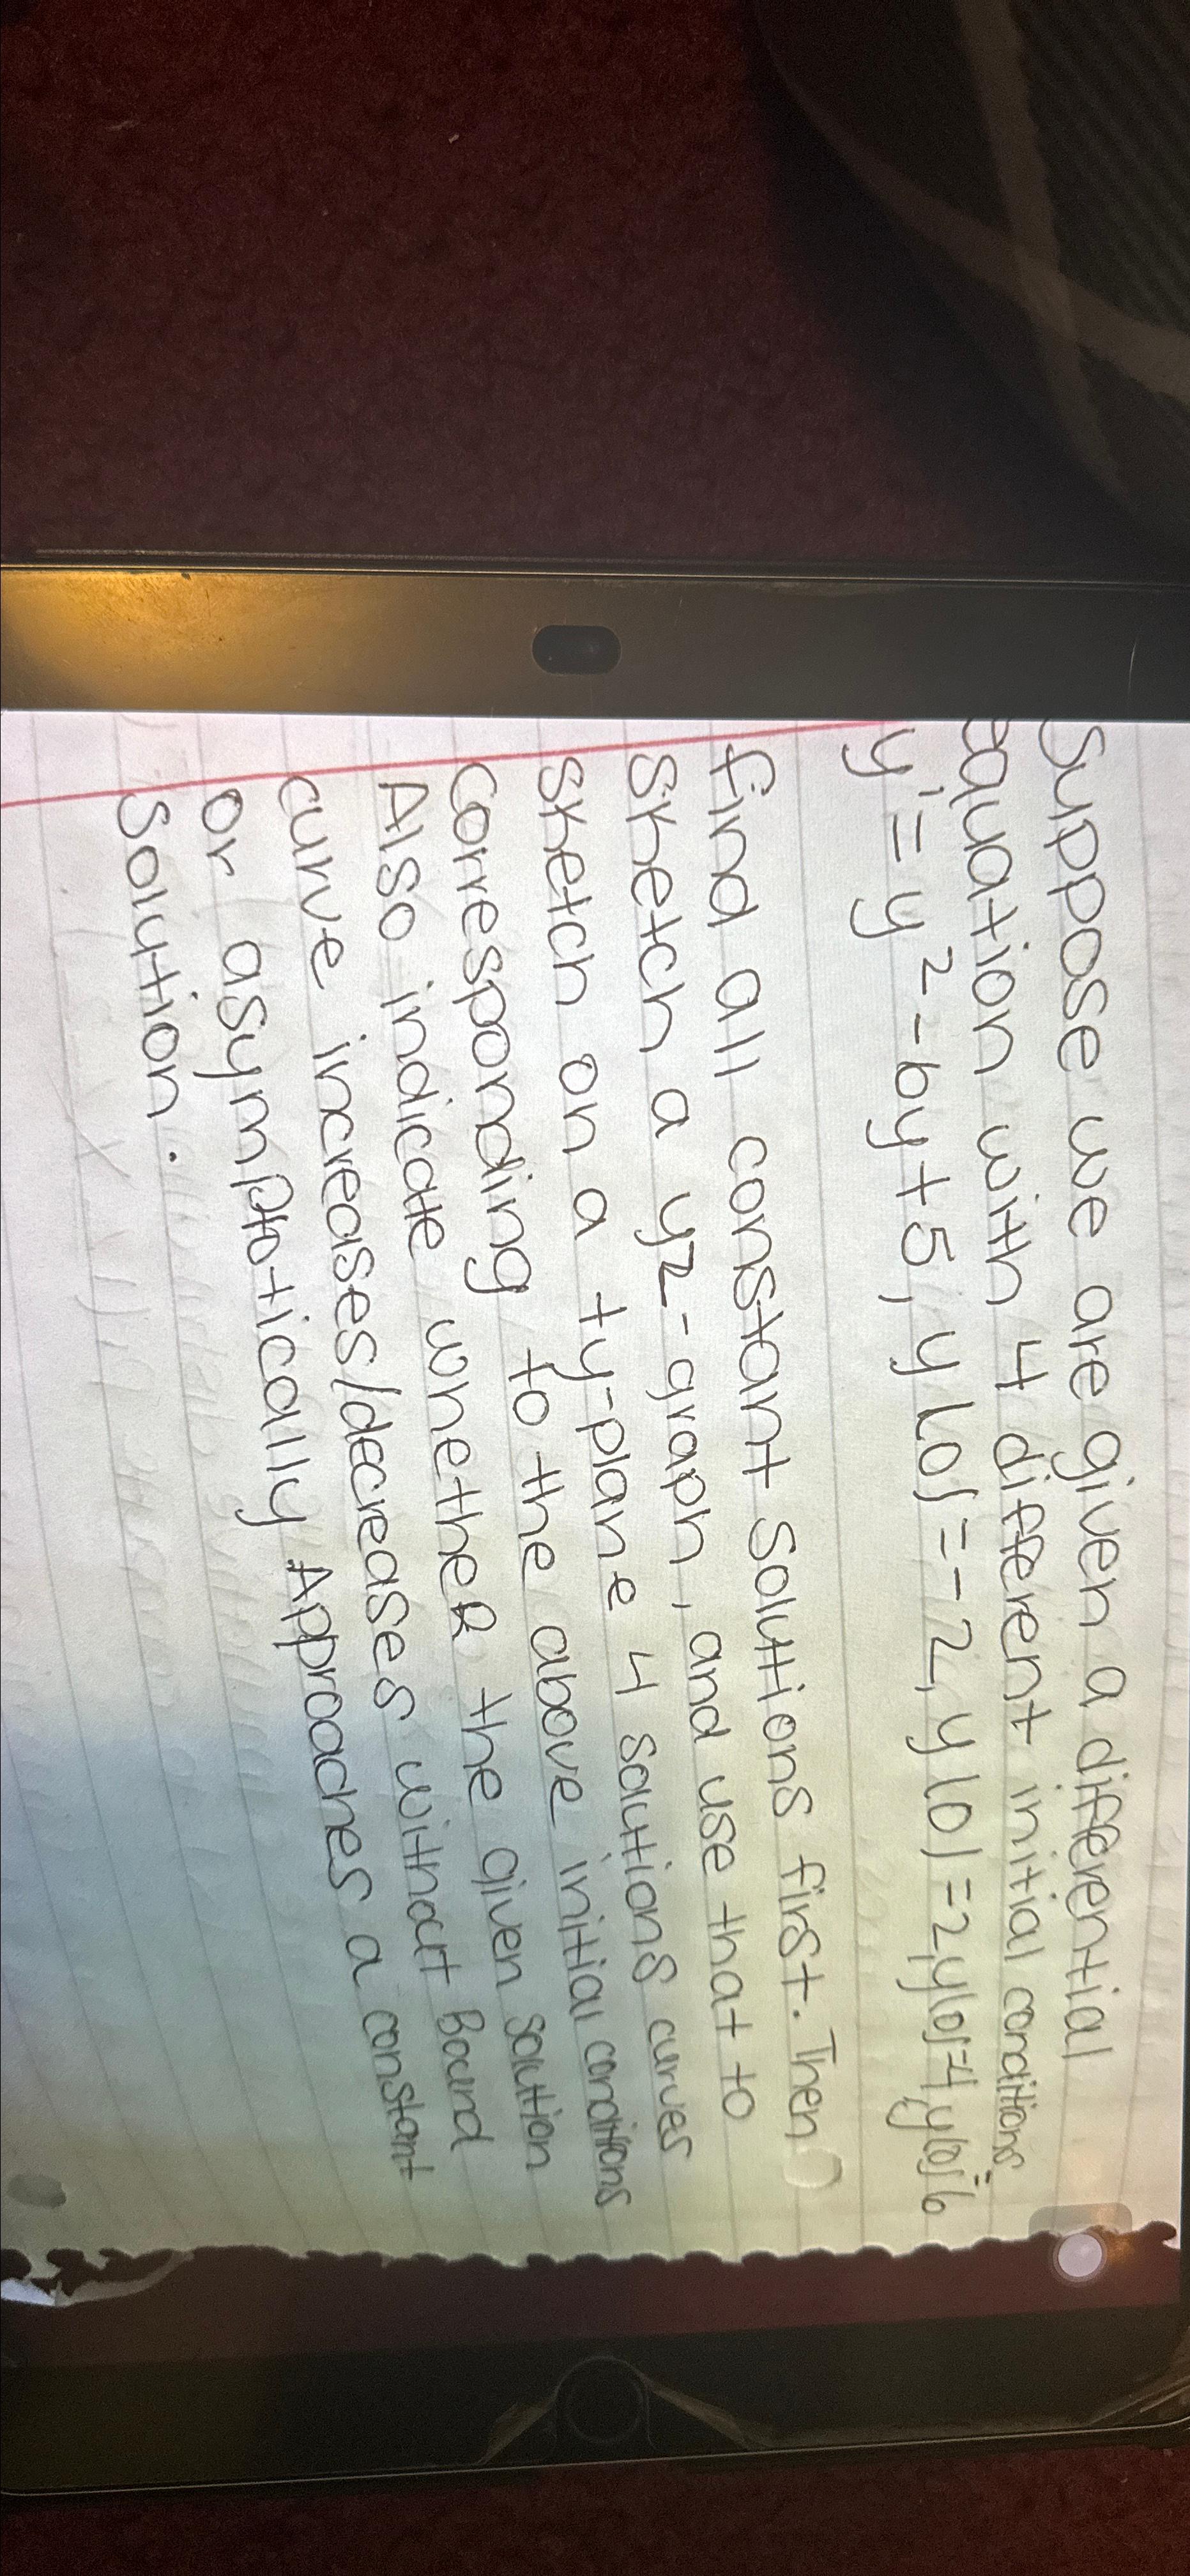 Suppose we are given a differential
equation with 4 different initial conditions:
y' = y² - 6y + 5, y(0) = -2, y(0) = 2, y(0) = 4, y(0) = 6
find all constant solutions first. Then
sketch a yz-graph, and use that to
sketch on a ty-plane 4 solutions curves
corresponding to the above initial conditions
Also indicate whether the given solution
curve increases/decreases without Bound
or asymptotically Approaches a constant
solution.